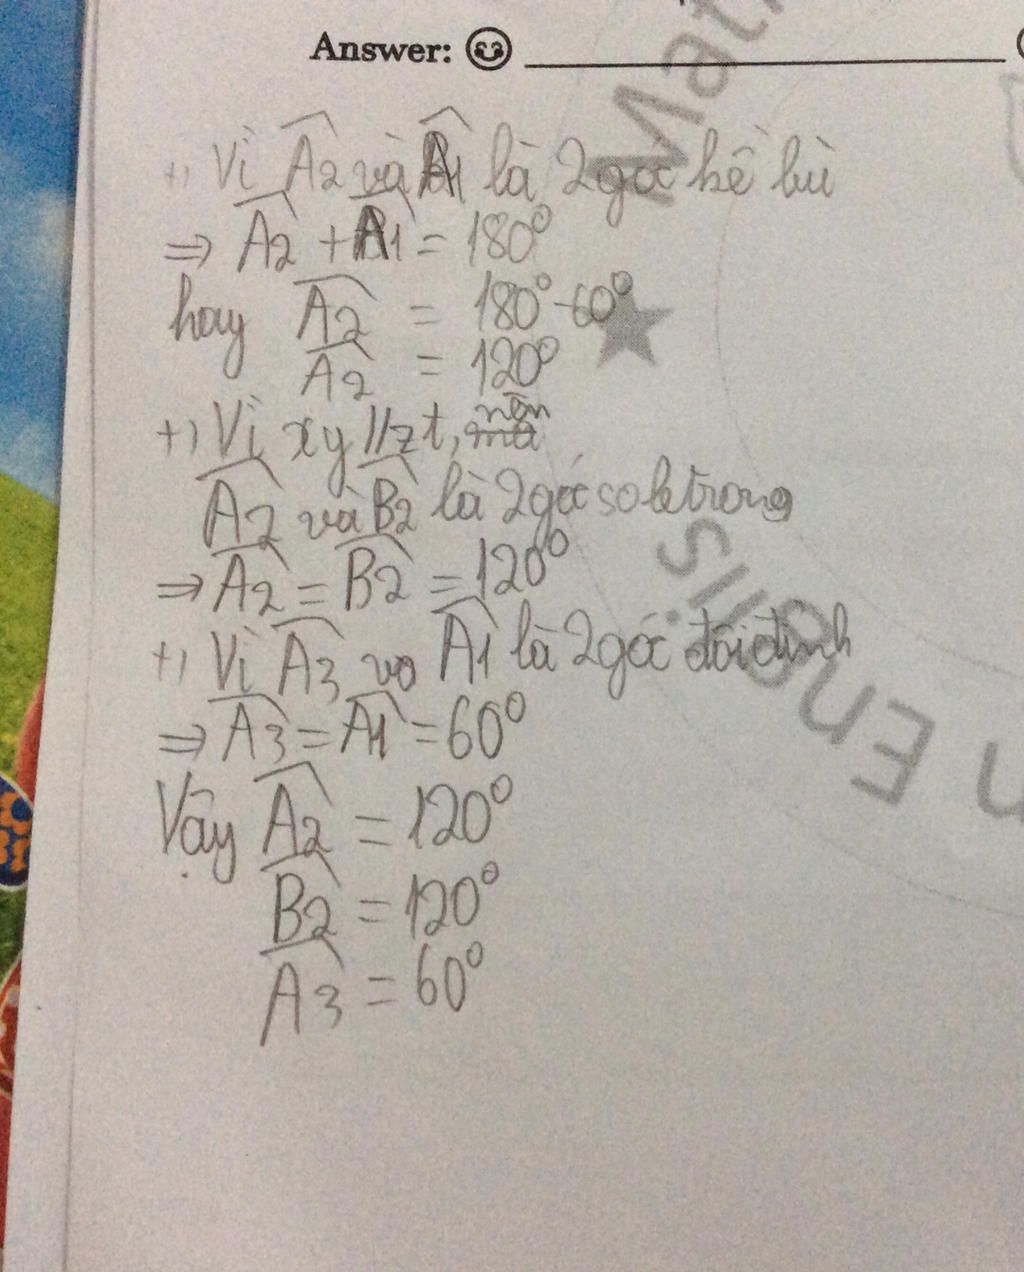 Answer:
+) Vì A2 và A1 là 2 góc kề bù
⇒ A2 + A1 = 180°
hay A2 = 180° - 60°
A2 = 120°
+) Vì xy // zt, nên
A2 và B2 là 2 góc so le trong
⇒ A2 = B2 = 120°
+) Vì A3 và A1 là 2 góc đối đỉnh
⇒ A3 = A1 = 60°
Vậy A2 = 120°
B2 = 120°
A3 = 60°
Math
Englis